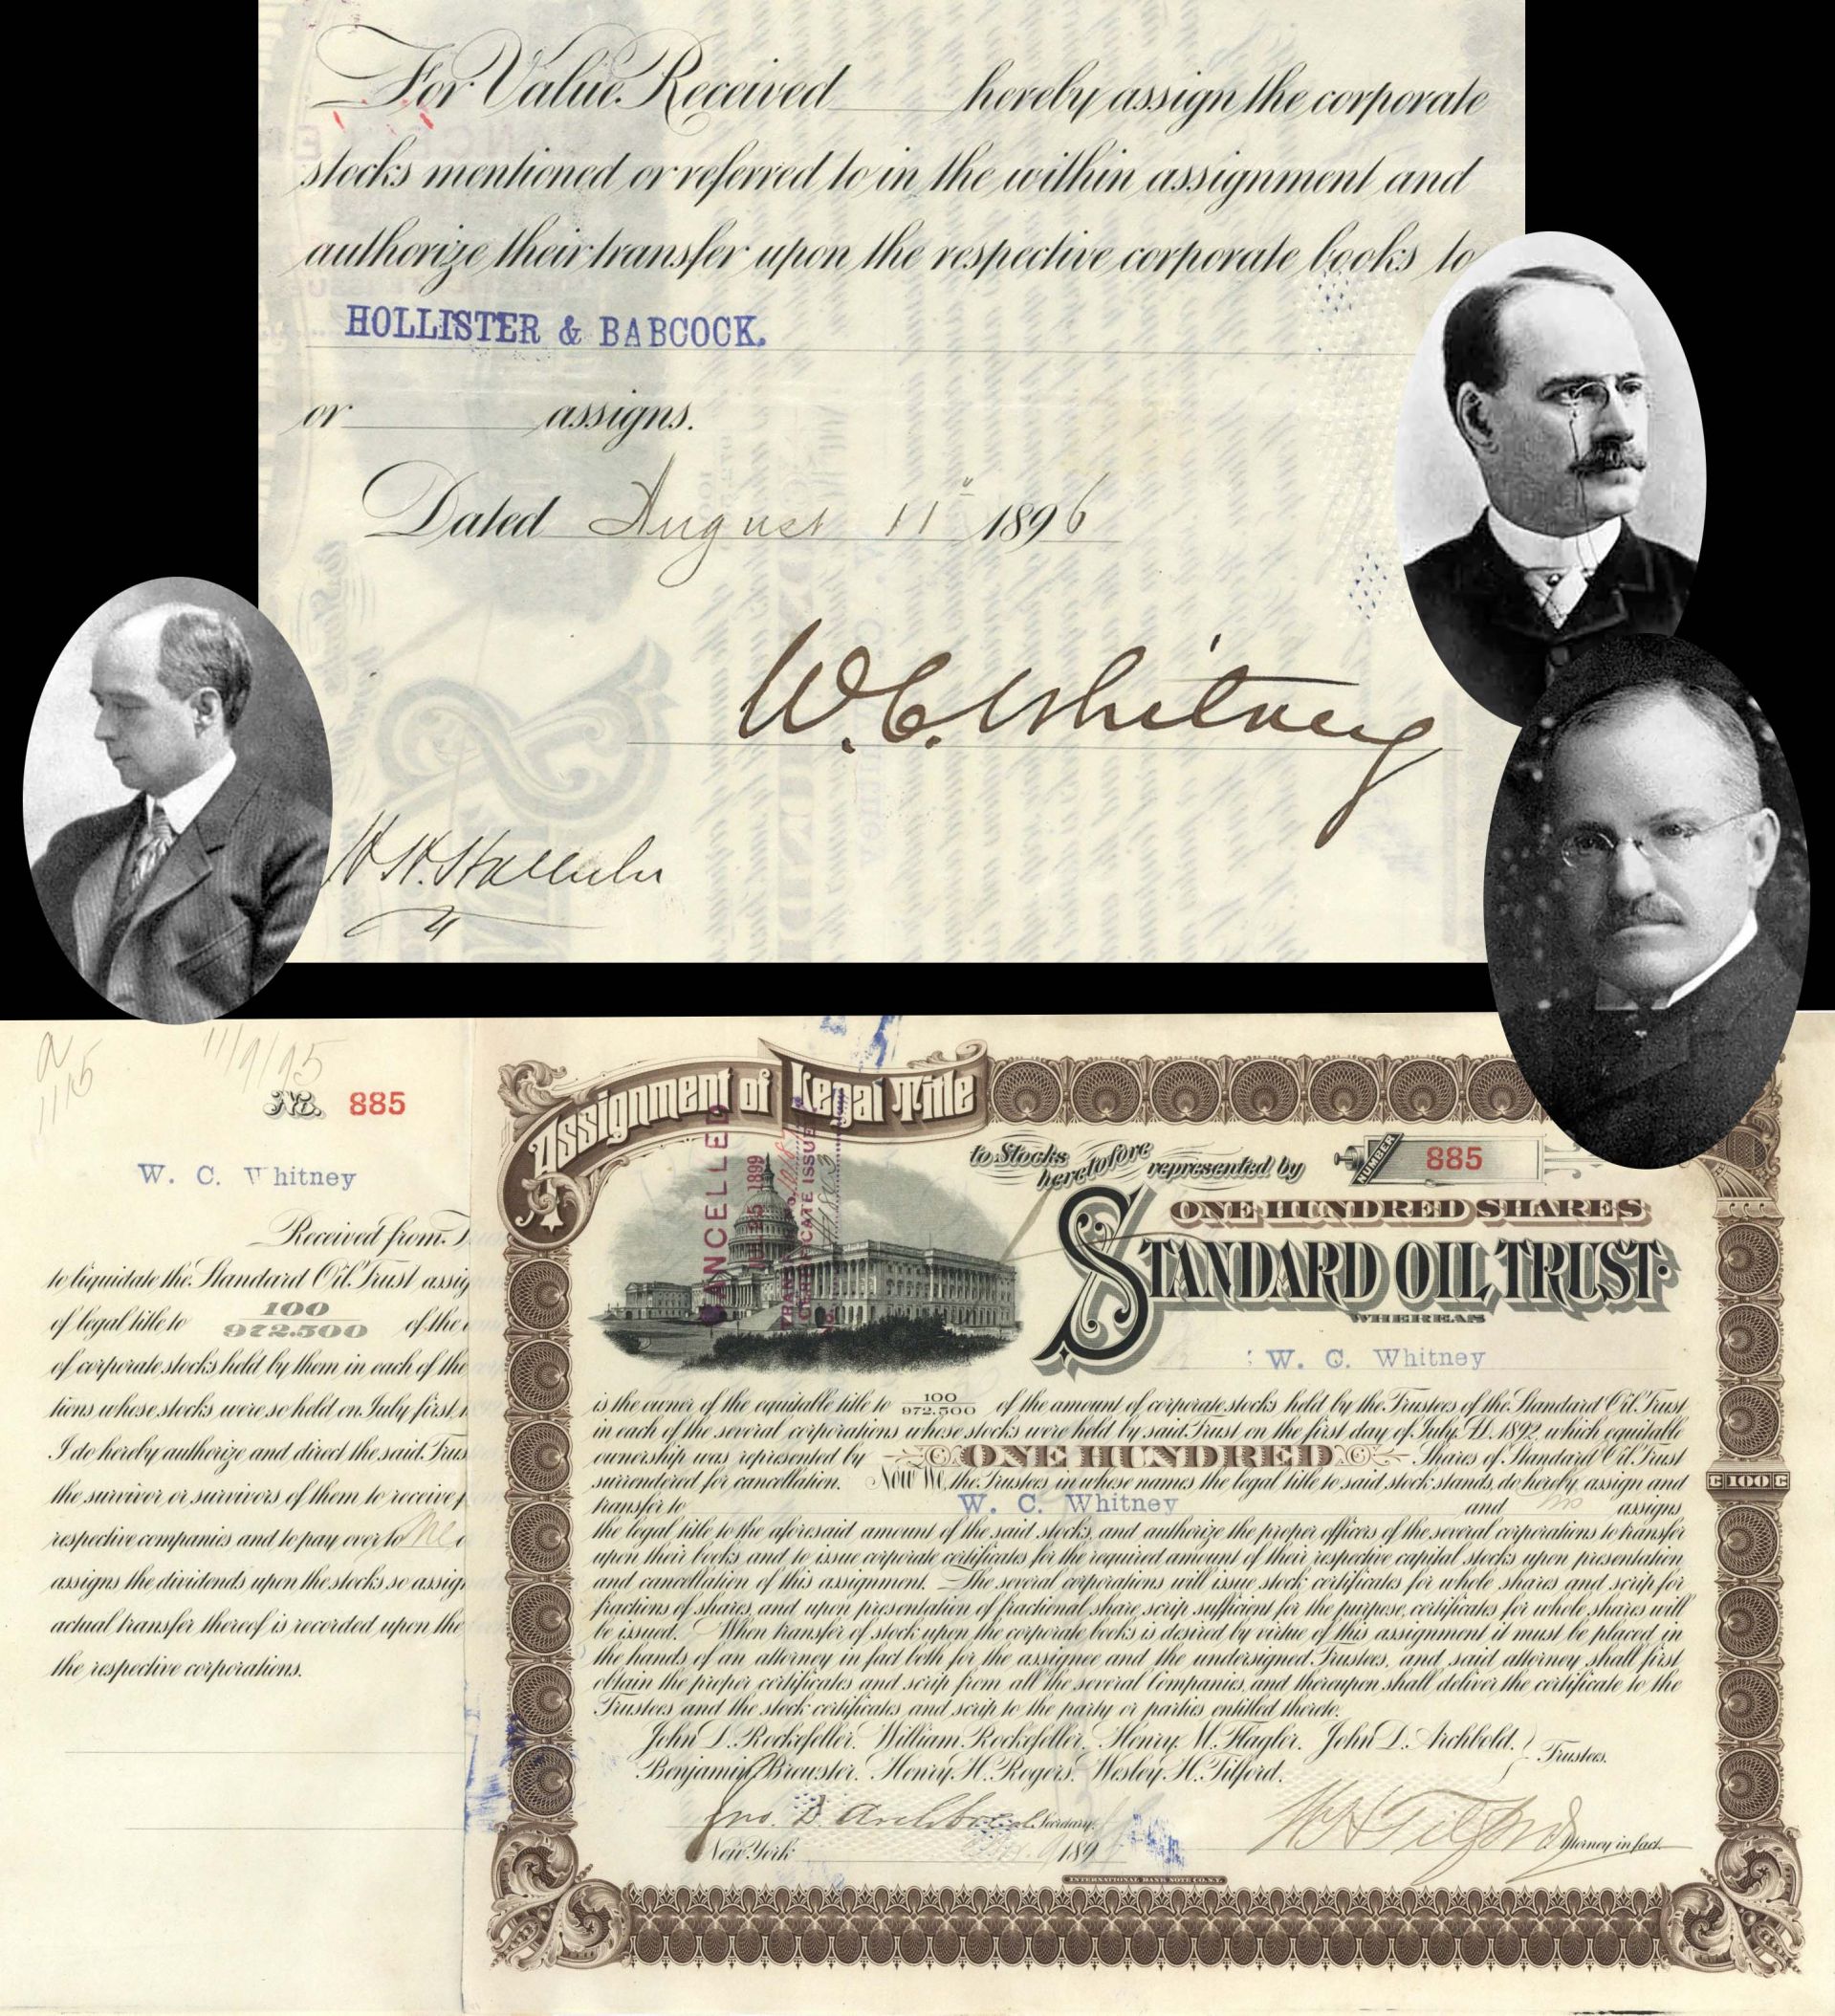 For Value Received hereby assign the corporate
stocks mentioned or referred to in the within assignment and
authorize their transfer upon the respective corporate books to
HOLLISTER & BABCOCK.
or assigns.
Dated August 11" 1896
W. C. Whitney
No. 885
W. C. Whitney
Received from
to liquidate the Standard Oil Trust assig
of legal title to 100/972.500 of the
of corporate stocks held by them in each of the
tions whose stocks were so held on July first
I do hereby authorize and direct the said Trus
the survivor or survivors of them to receive
respective companies and to pay over to Me o
assigns the dividends upon the stocks so assig
actual transfer thereof is recorded upon the
the respective corporations.
Assignment of Legal Title
to Stocks heretofore represented by
NUMBER 885
ONE HUNDRED SHARES
STANDARD OIL TRUST.
WHEREAS
W. C. Whitney
is the owner of the equitable title to 100/972.500 of the amount of corporate stocks held by the Trustees of the Standard Oil Trust
in each of the several corporations whose stocks were held by said Trust on the first day of July A.D. 1892, which equitable
ownership was represented by ONE HUNDRED Shares of Standard Oil Trust
surrendered for cancellation. Now We, the Trustees in whose names the legal title to said stock stands, do hereby assign and
transfer to W. C. Whitney and assigns
the legal title to the aforesaid amount of the said stocks, and authorize the proper officers of the several corporations to transfer
upon their books and to issue corporate certificates for the required amount of their respective capital stocks upon presentation
and cancellation of this assignment. The several corporations will issue stock certificates for whole shares and scrip for
fractions of shares, and upon presentation of fractional share scrip sufficient for the purpose, certificates for whole shares will
be issued. When transfer of stock upon the corporate books is desired by virtue of this assignment it must be placed in
the hands of an attorney in fact both for the assignee and the undersigned Trustees, and said attorney shall first
obtain the proper certificates and scrip from all the several Companies, and thereupon shall deliver the certificate to the
Trustees and the stock certificates and scrip to the party or parties entitled thereto.
John D. Rockefeller. William Rockefeller. Henry M. Flagler. John D. Archbold.
Benjamin Brewster. Henry H. Rogers. Wesley H. Tilford.
Trustees.
Jno. D. Archbold Secretary.
W H Tilford Attorney in fact.
New York 189
INTERNATIONAL BANK NOTE CO. N.Y.
100
CANCELLED
25 1899
CERTIFICATE ISSUE